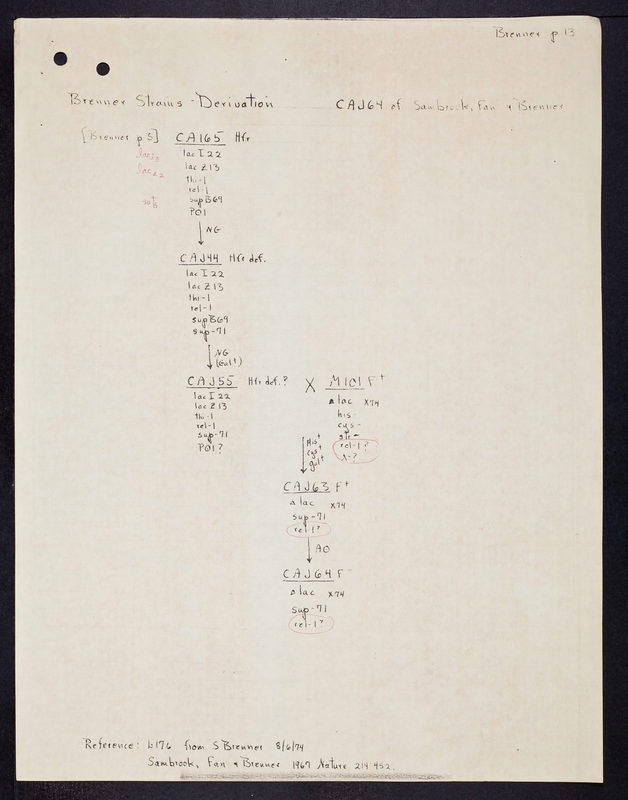 Brenner p 13
Brenner Strains - Derivation CAJ64 of Sambrook, Fan & Brenner
[Brenner p 3] CA165 Hfr
lac I 22
lac Z 13
thi-1
rel-1
sup B69
PO1
NG
CAJ44 Hfr def.
lac I 22
lac Z 13
thi-1
rel-1
sup B69
sup-71
NG
(Gal+)
CAJ55 Hfr def.? X M101 F+
lac I 22
lac Z 13
thi-1
rel-1
sup-71
PO1?
Δ lac X74
his-
cys-
rel-1?
λ-?
His+
cys+
gal+
CAJ63 F+
Δ lac X74
sup-71
rel-1?
AO
CAJ64 F-
Δ lac X74
sup-71
rel-1?
Reference: b176 from S Brenner 8/6/74
Sambrook, Fan & Brenner 1967 Nature 214 452.